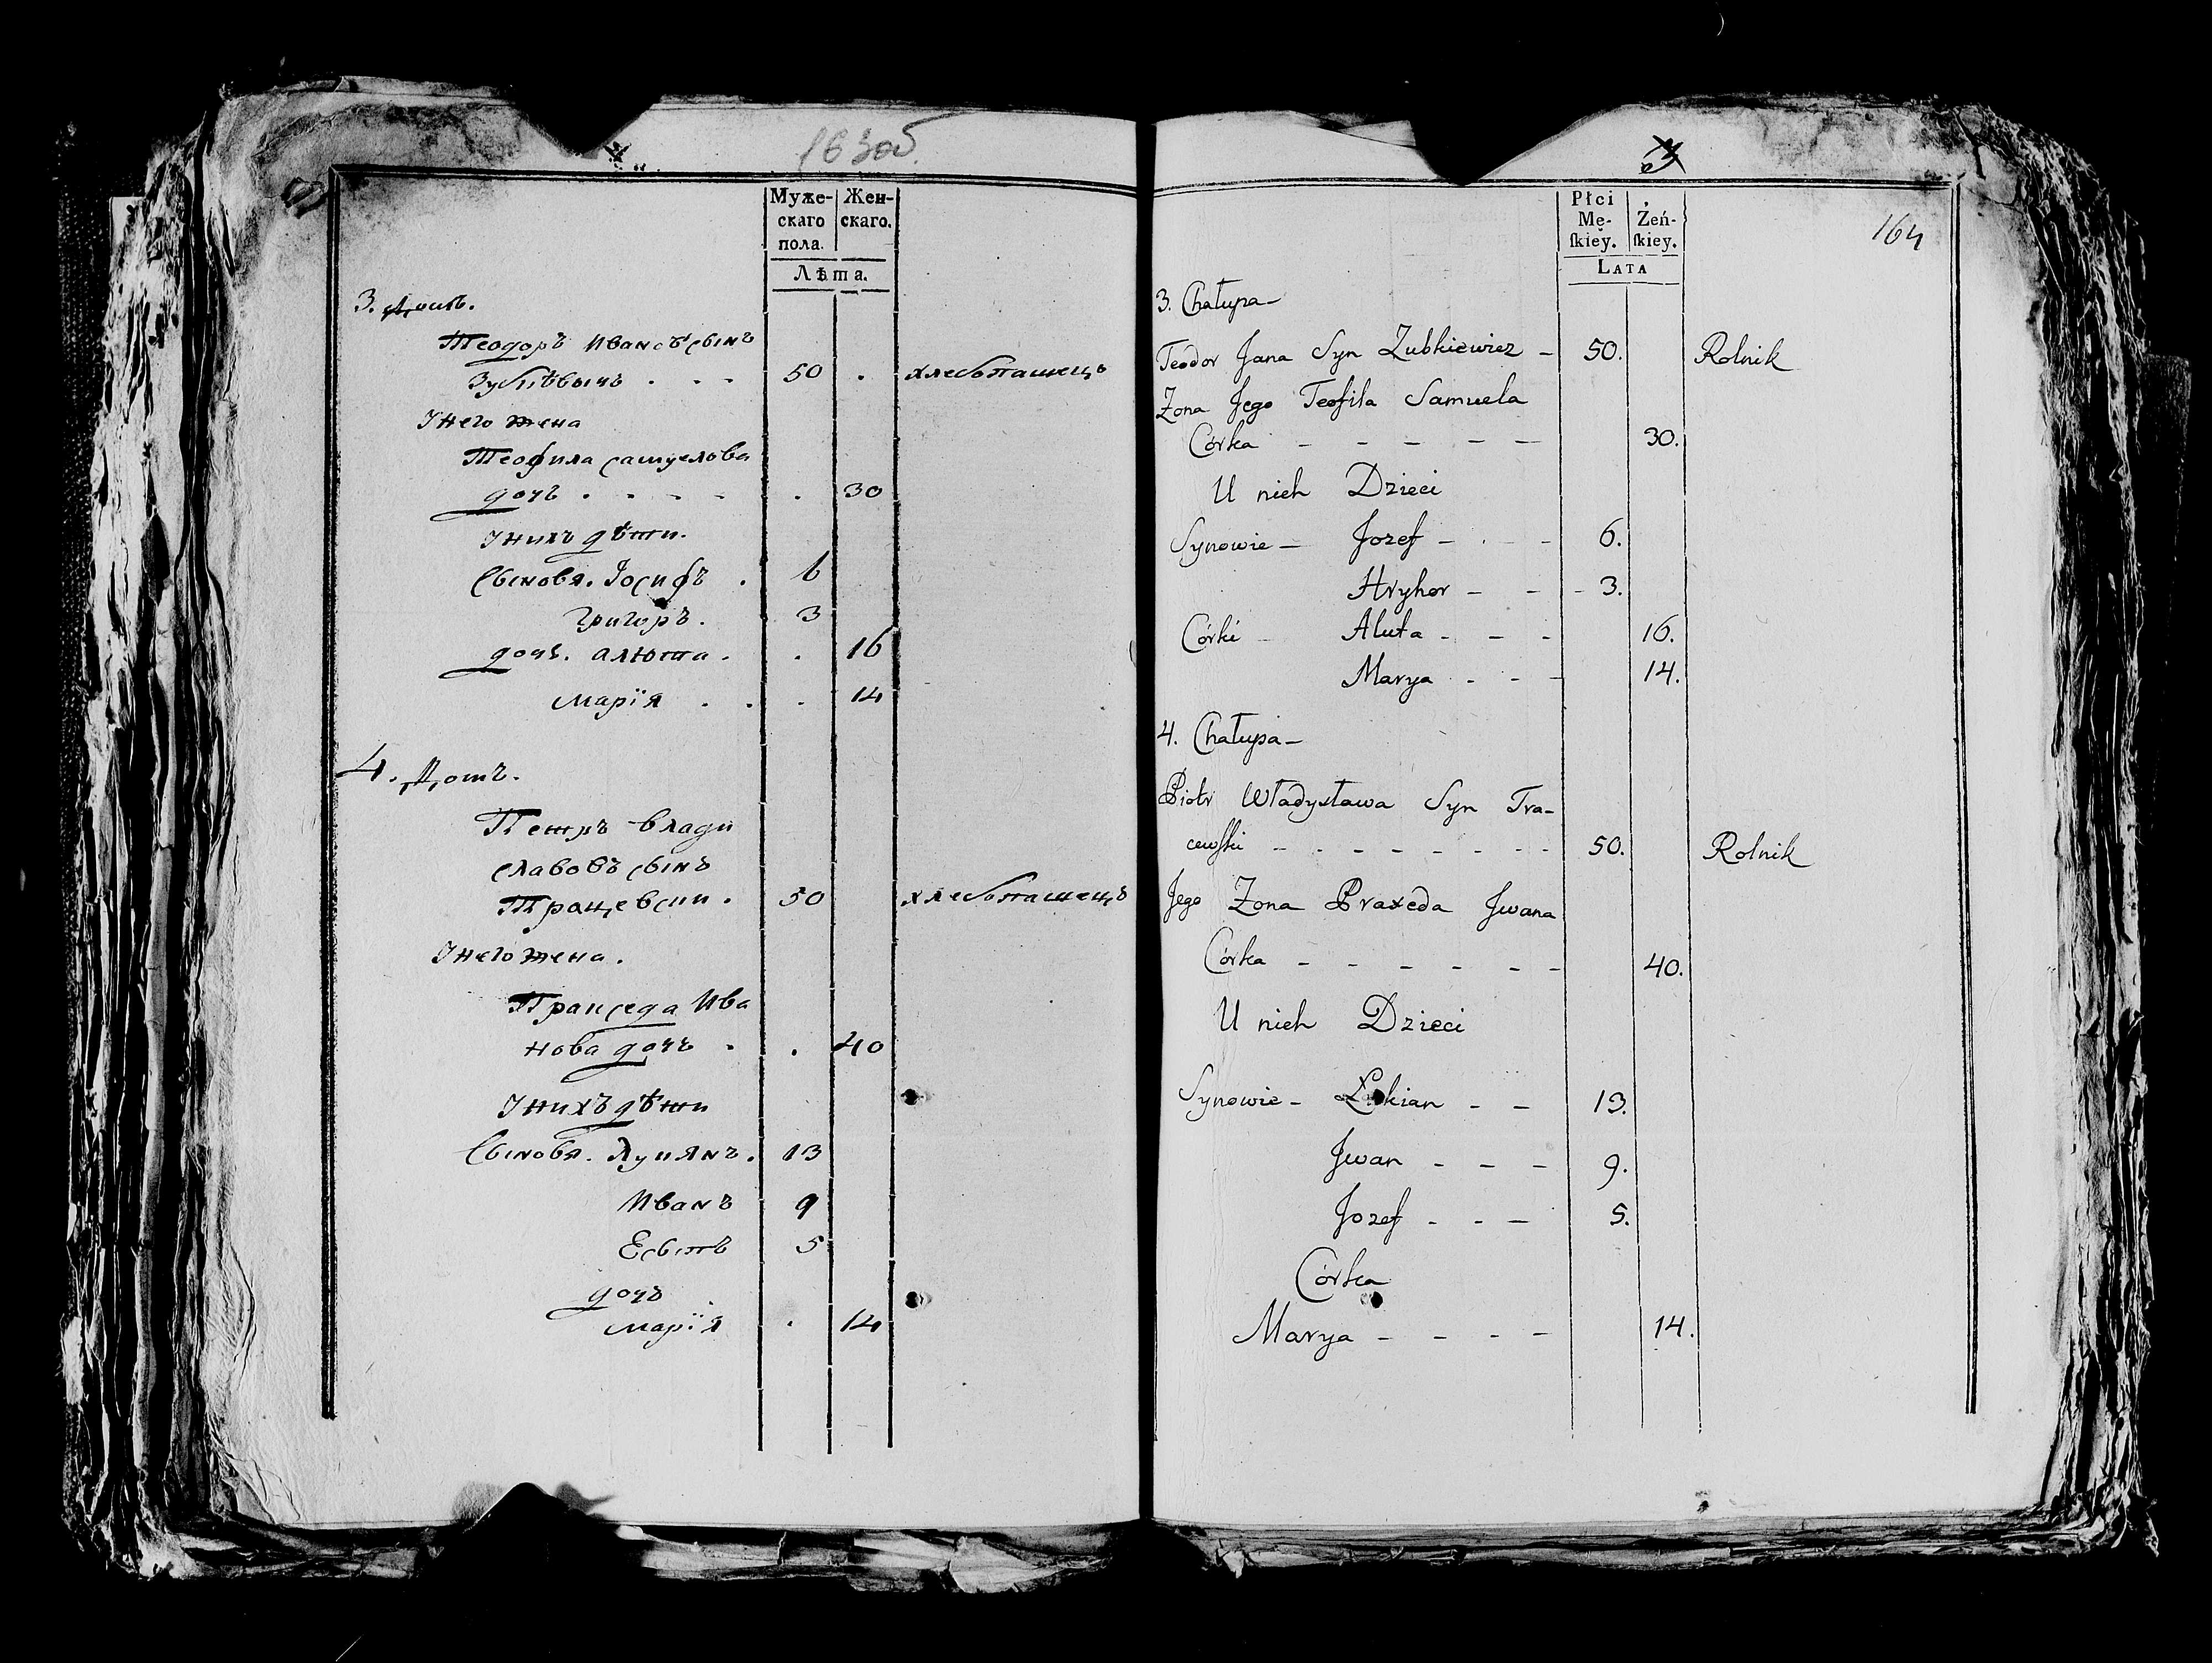 163 об.
Муже-
скаго
пола.
Жен-
скаго.
Лѣта.
3. Домъ.
Теодоръ Ивановъ сынъ
Зубкѣвычъ . . . 50 . хлебопашецъ
У него жена
Теофила Самуелова
дочъ . . . . . 30
У нихъ дѣти.
Сыновя. Іосифъ . 6
Григоръ. 3
дочъ. Алюта . . 16
Марїя . . . 14
4. Домъ.
Петръ Влади
славовъ сынъ
Трацевски . 50 хлебопашецъ
У него жена.
Пракседа Ива
нова дочъ . . 40
У нихъ дѣти
Сыновя. Лукянъ. 13
Иванъ 9
Есыпъ 5
дочъ
Марїя . 14
3
164
Płci
Mę-
ſkiey.
Żeń-
ſkiey.
LATA
3. Chałupa –
Teodor Jana Syn Zubkiewicz – 50. Rolnik
Zona Jego Teofila Samuela
Córka – – – – – 30.
U nich Dzieci
Synowie – Jozef – . – 6.
Hryhor – – – 3.
Córki – Aluta – – – 16.
Marya – – – 14.
4. Chałupa –
Piotr Władysława Syn Tra-
cewſki – – – – – – – – 50. Rolnik
Jego Zona Praxeda Jwana
Córka – – – – – – 40.
U nich Dzieci
Synowie – Łukian – – 13.
Jwan – – – 9.
Jozef – – – 5.
Córka
Marya – – – – 14.